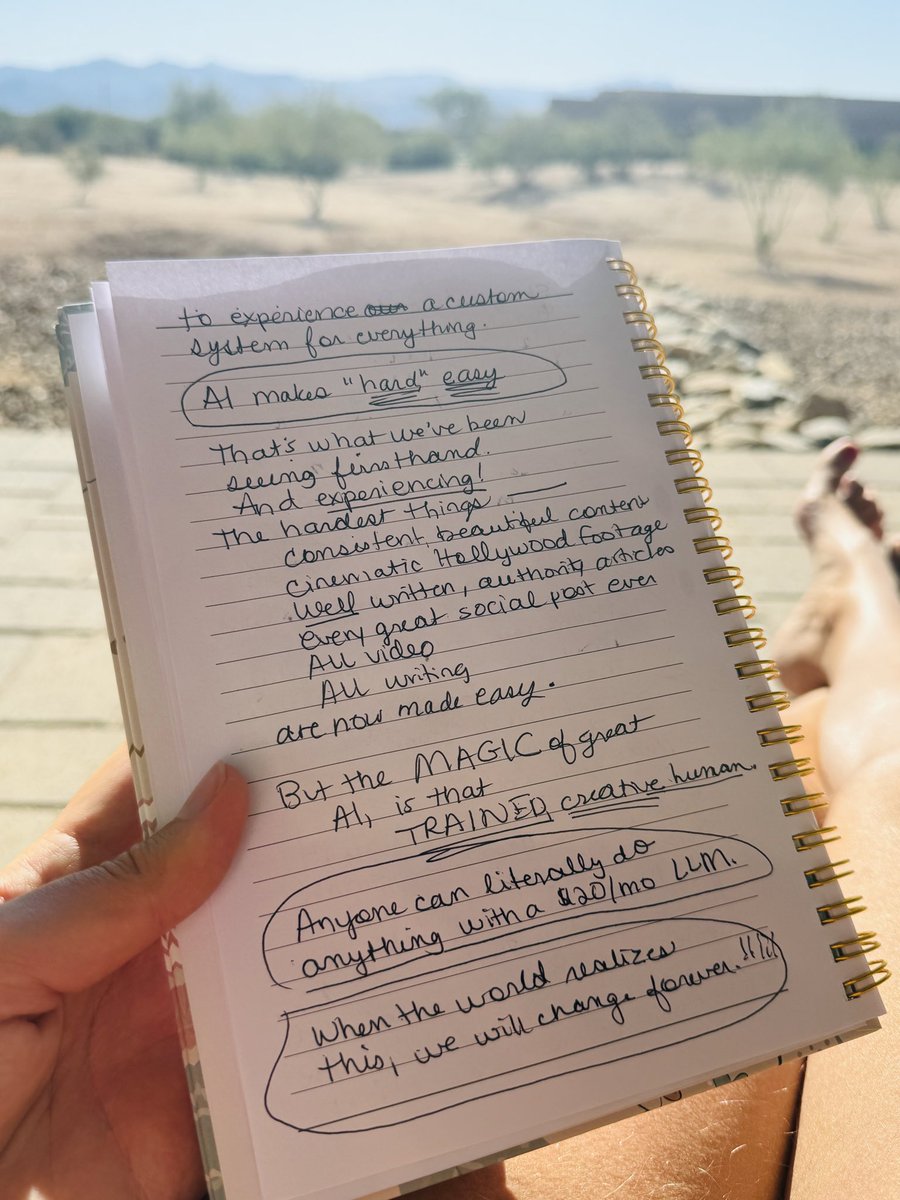 to experience a custom
system for everything.
AI makes "hard" easy
That's what we've been
seeing firsthand.
And experiencing!
The hardest things —
consistent, beautiful content
cinematic Hollywood footage
Well written, authority articles
every great social post ever
All video
All writing
are now made easy.
But the MAGIC of great
AI, is that
TRAINED, creative human.
Anyone can literally do
anything with a $20/mo LLM.
When the world realizes
this, we will change forever.!!!!